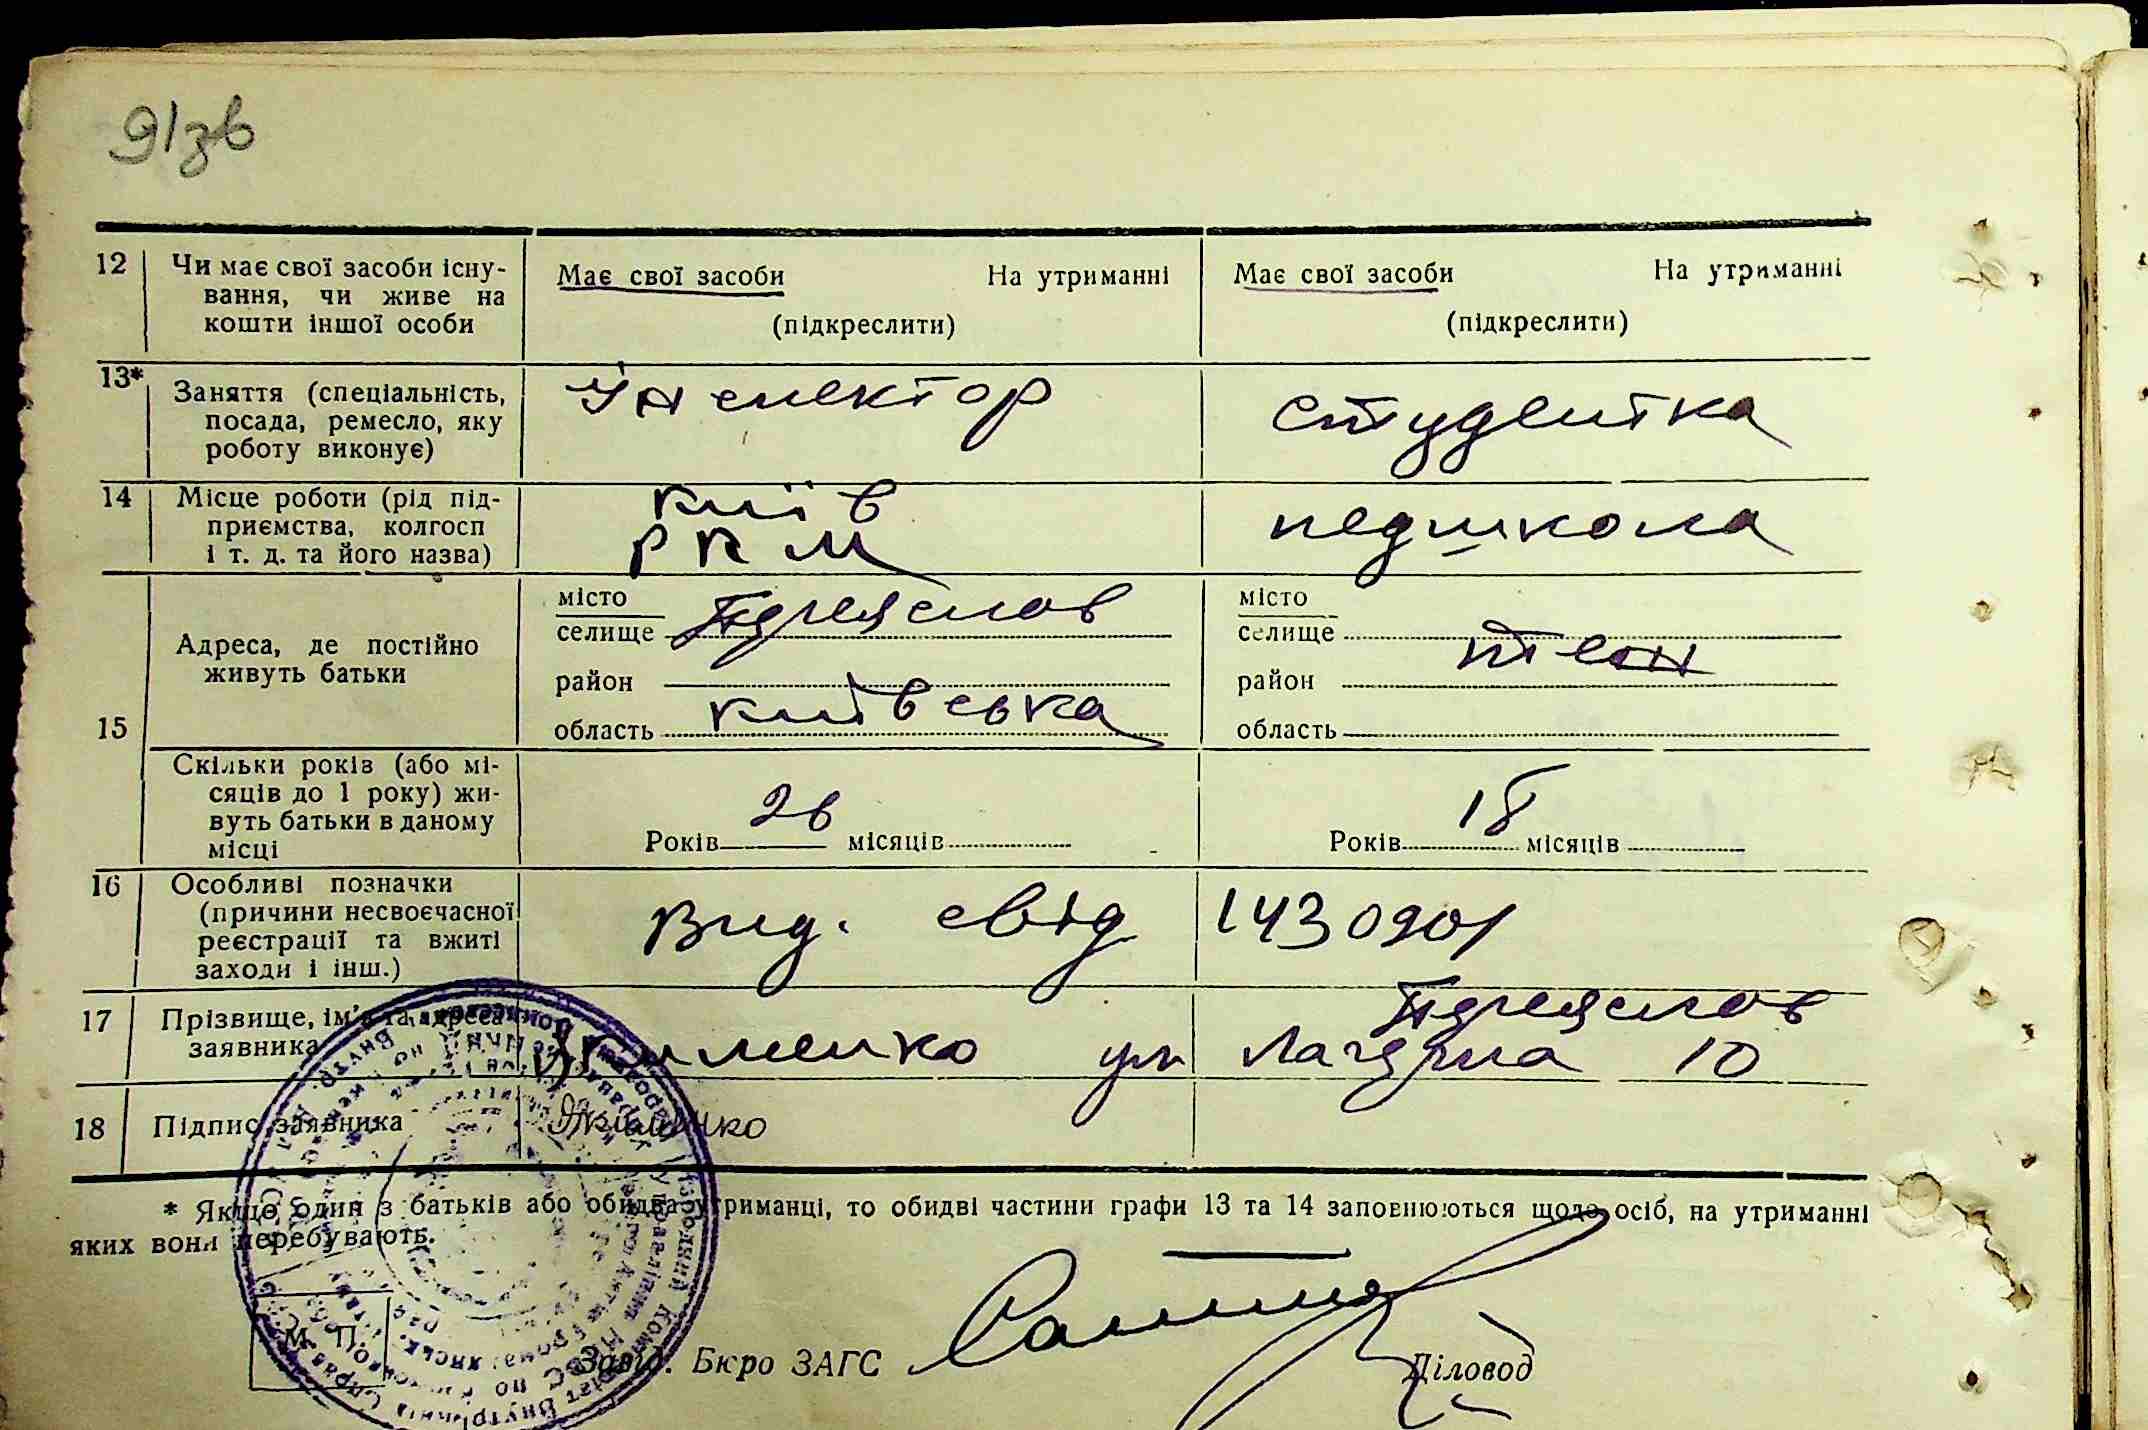 91зв
12 Чи має свої засоби існу-
вання, чи живе на
кошти іншої особи
Має свої засоби На утриманні
(підкреслити)
Має свої засоби На утриманні
(підкреслити)
13* Заняття (спеціальність,
посада, ремесло, яку
роботу виконує)
Інспектор
студентка
14 Місце роботи (рід під-
приємства, колгосп
і т. д. та його назва)
Київ
РКМ
педшкола
15
Адреса, де постійно
живуть батьки
місто
селище Переяслов
район
область Київська
місто
селище
район
область
Скільки років (або мі-
сяців до 1 року) жи-
вуть батьки в даному
місці
Років 26 місяців
Років 18 місяців
16 Особливі позначки
(причини несвоєчасної
реєстрації та вжиті
заходи і інш.)
Вид. свід 1430901
17 Прізвище, ім'я та адреса
заявника
Переяслов
Якименко ул
10
18 Підпис заявника
Якименко
* Якщо один з батьків або обидва утриманці, то обидві частини графи 13 та 14 заповнюються щодо осіб, на утриманні
яких вони перебувають.
М. П.
Завід. Бюро ЗАГС
Діловод